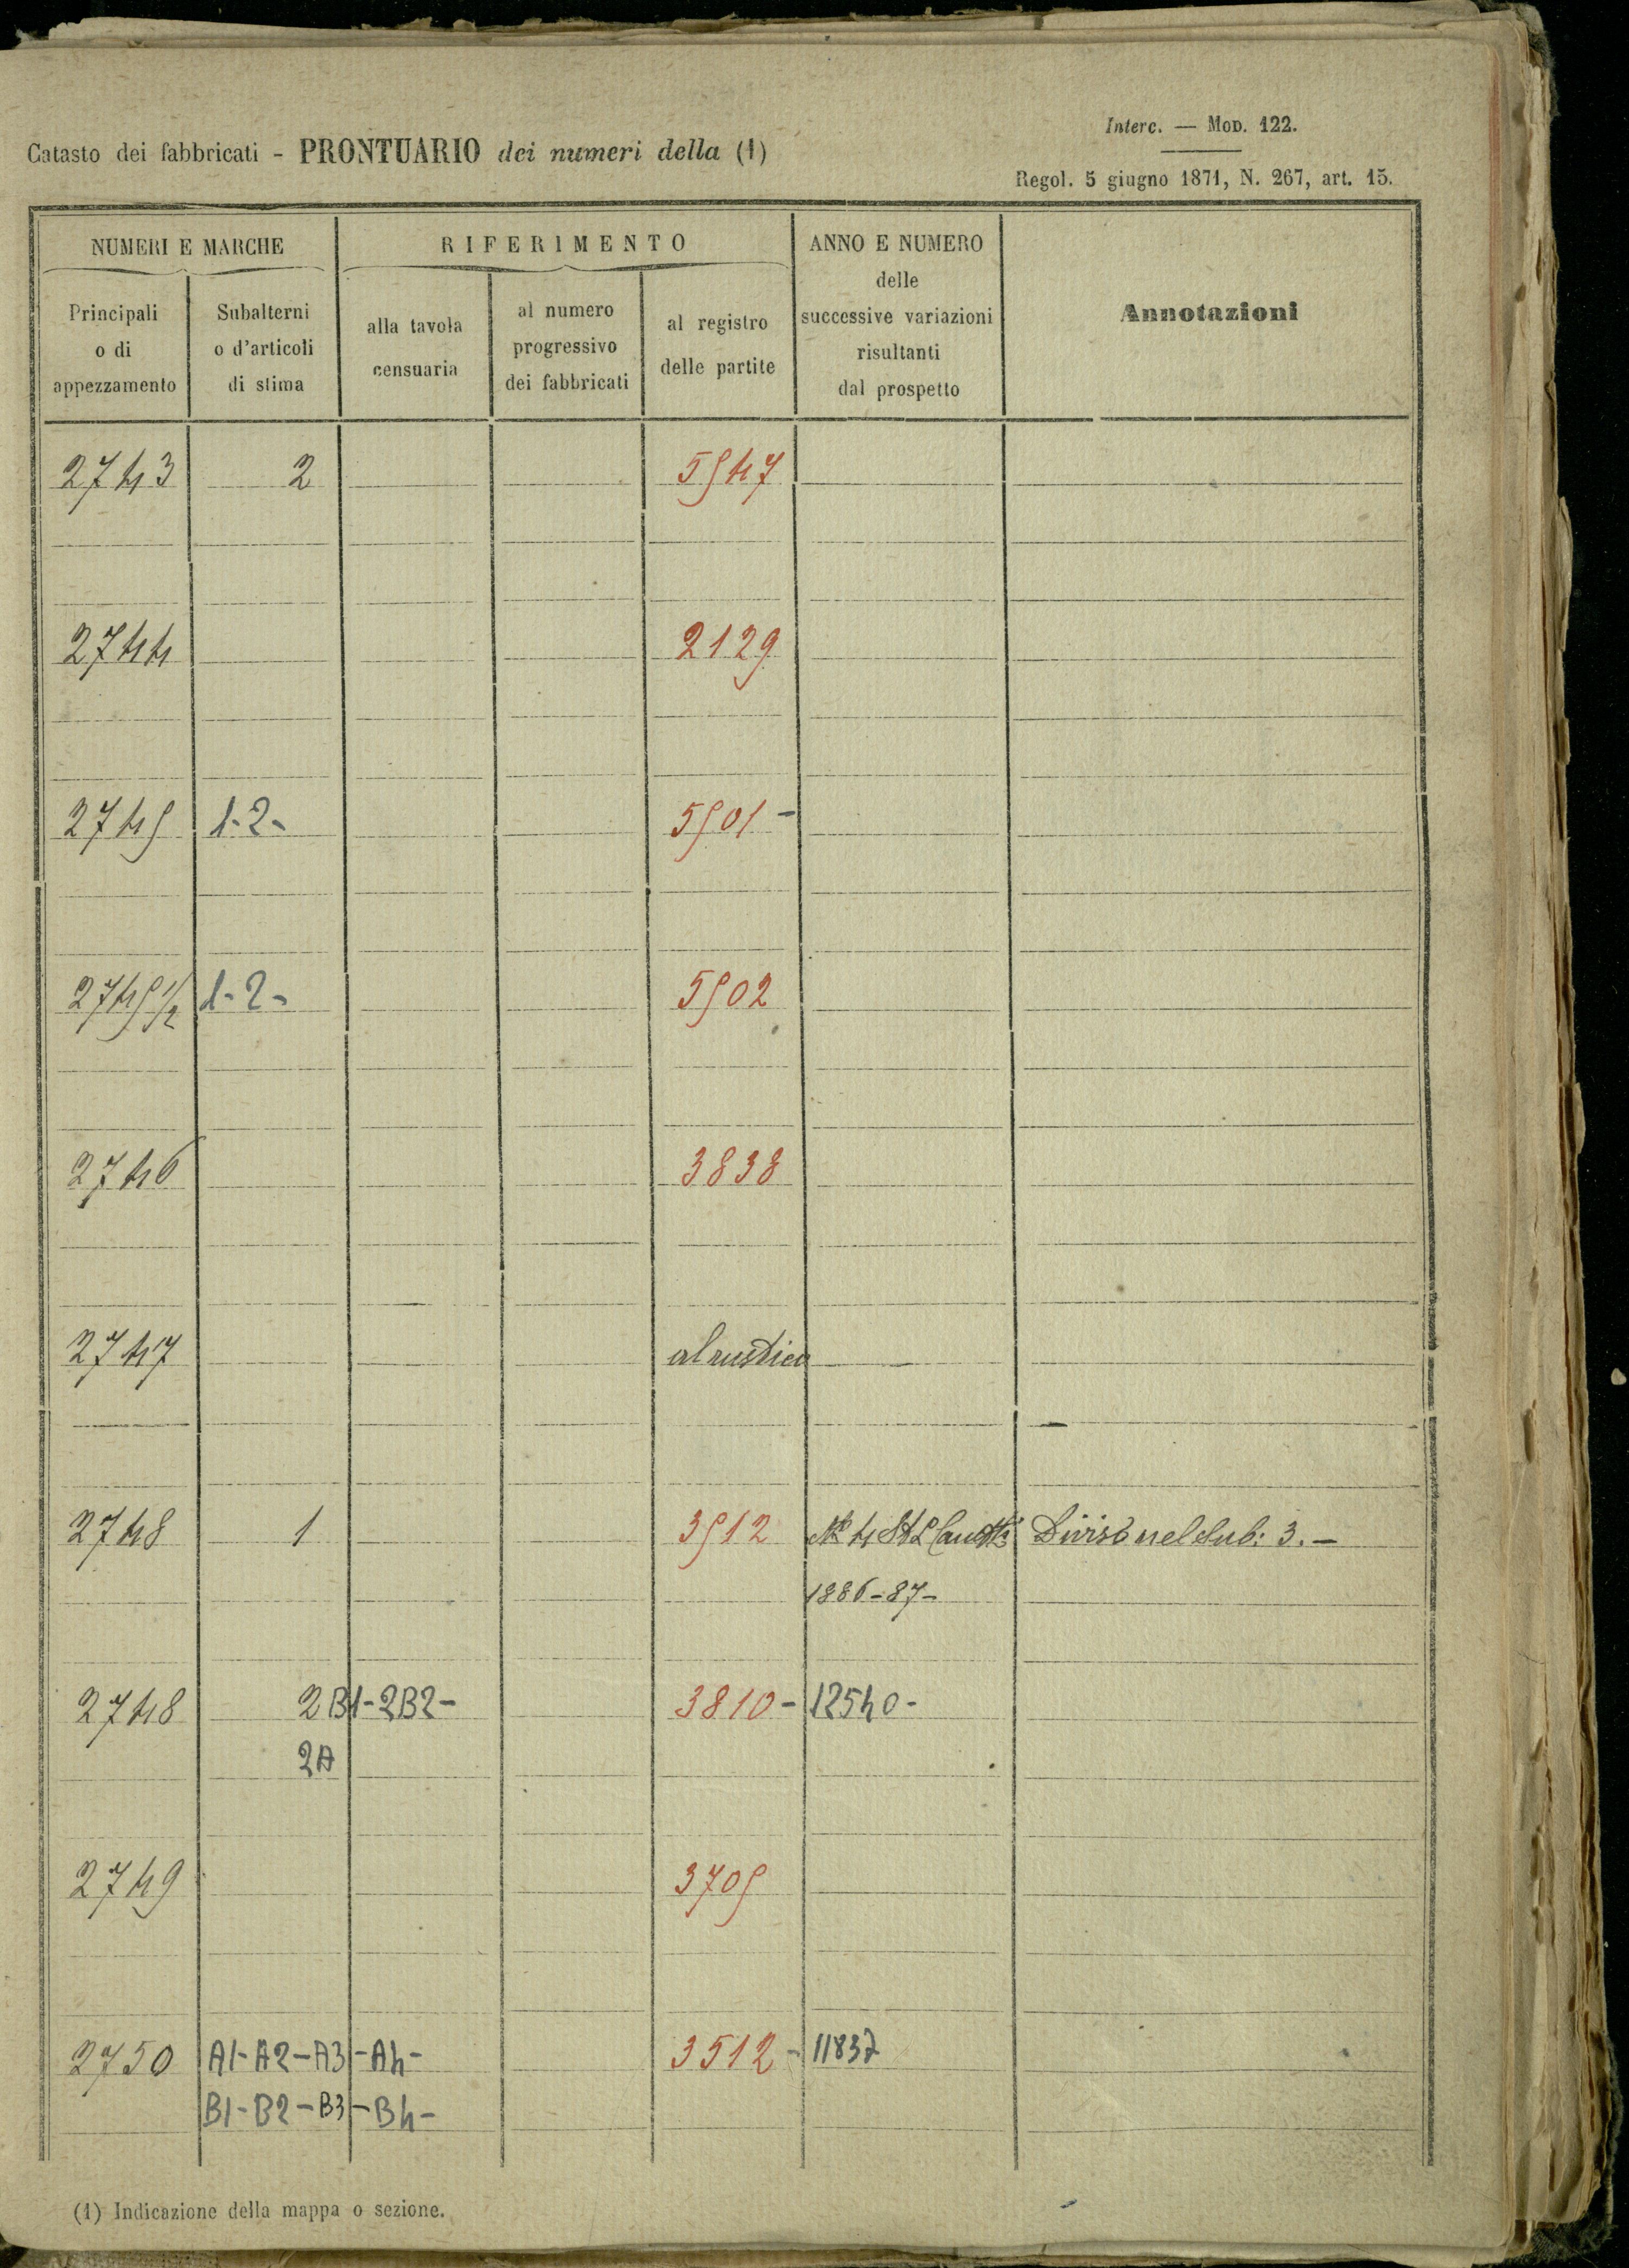 Interc. — Mod. 122.
Catasto dei fabbricati - PRONTUARIO dei numeri della (1)
Regol. 5 giugno 1871, N. 267, art. 15.
NUMERI E MARCHE RIFERIMENTO ANNO E NUMERO delle successive variazioni risultanti dal prospetto Annotazioni
Principali o di appezzamento Subalterni o d'articoli di stima alla tavola censuaria al numero progressivo dei fabbricati al registro delle partite
2743 2 5547
2744 2129
2745 1-2- 5501-
2745 1/2 1-2- 5502
2746 3838
2747 al rustico
2748 1 3512 N° 4 Diviso nel Sub: 3.-
1886-87-
2748 2B1-2B2- 3810- 12540-
2A
2749 3705
2750 A1-A2-A3-A4- 3512- 11837
B1-B2-B3-B4-
(1) Indicazione della mappa o sezione.